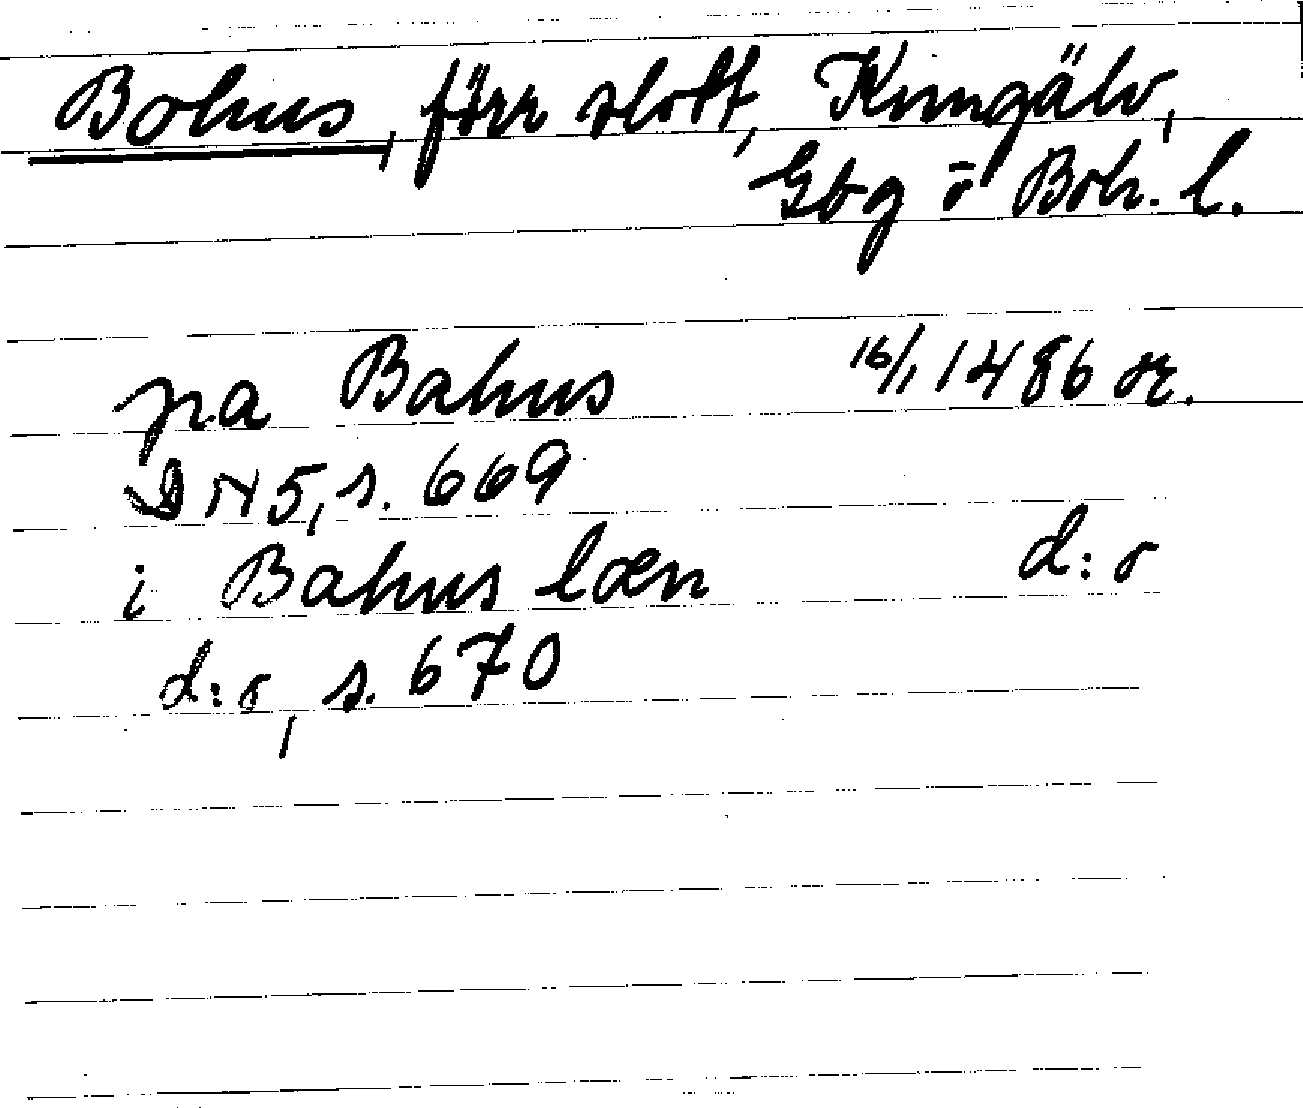 Bohus, förr slott, Kungälv,
Gbg o Boh. l.
pa Bahus 16/1 1486 or.
DN 5, s. 669
i Bahus læn d:o
d:o, s. 670